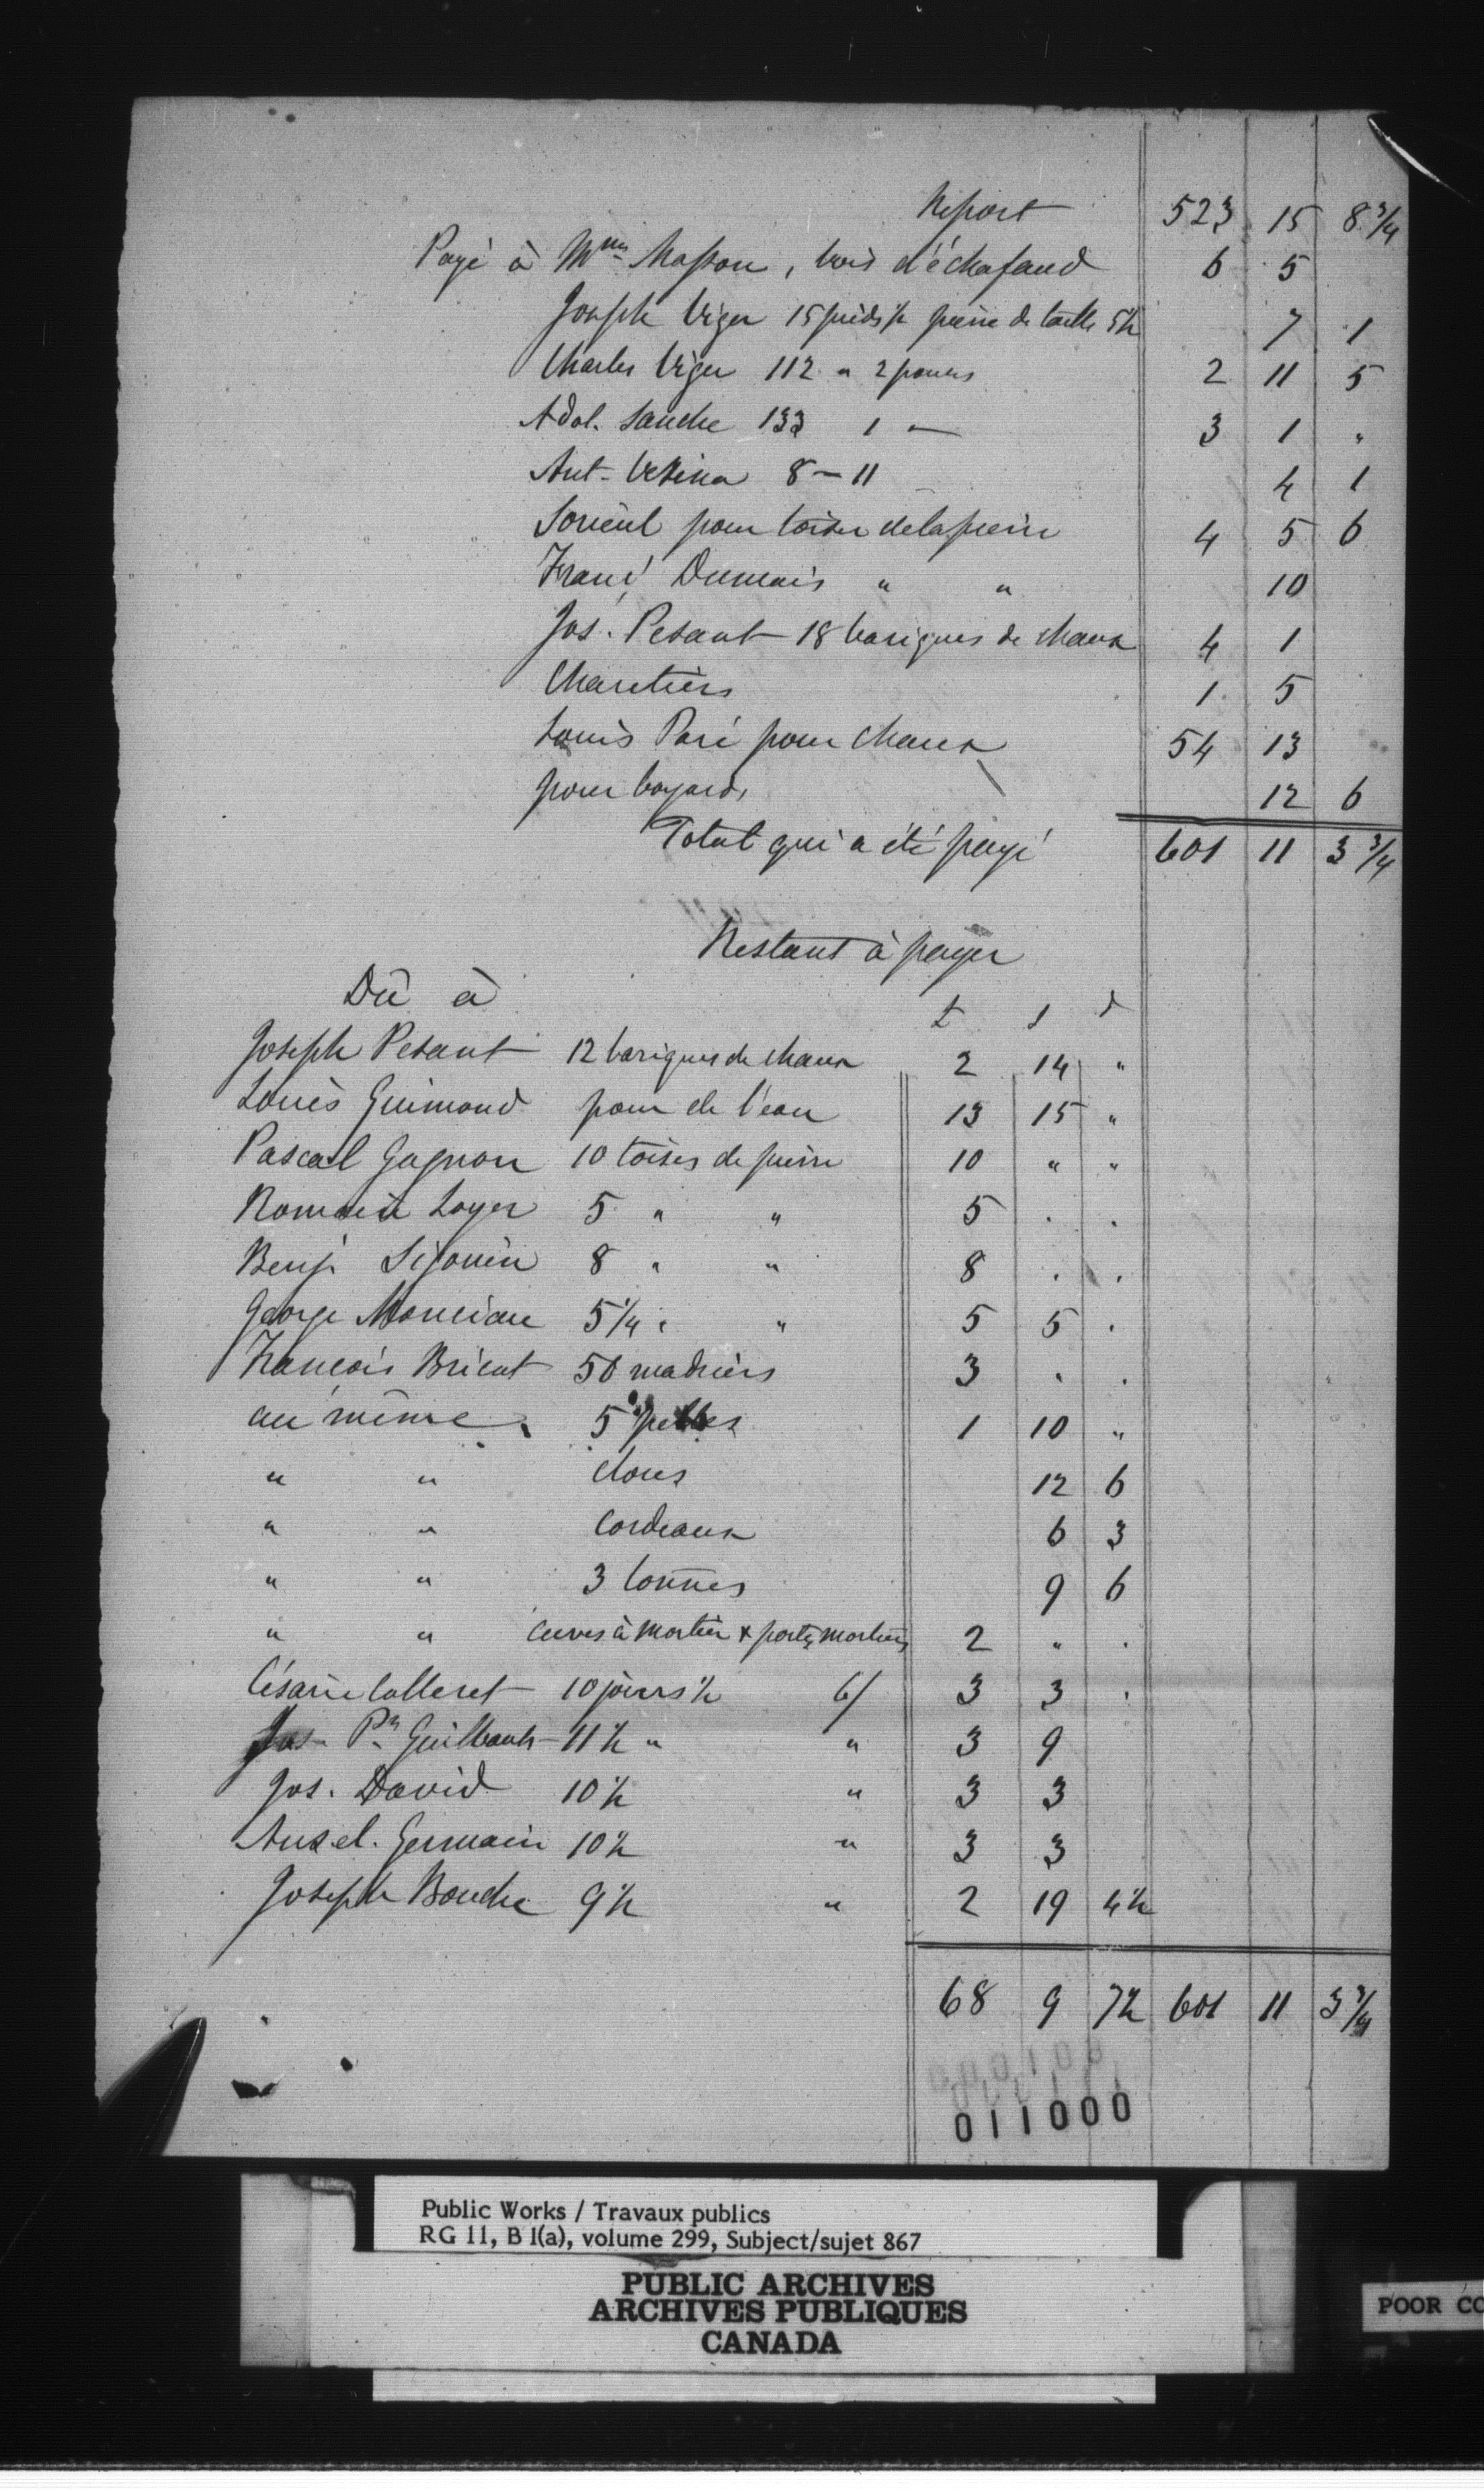 Report 523 15 8 3/4
Payé à Mme Masson, bois d'échafaud 6 5
Joseph Viger 15 pieds ½ pierre de taille 5½ 7 1
Charles Viger 112 " 2 pouces 2 11 5
Adol. Sauche 133 1 — 3 1 "
Ant. Vesina 8 — 11 4 1
pour toiser de la pierre 4 5 6
Franç Dumais " " 10
Jos. Pesant 18 bariques de chaux 4 1
Charetiers 1 5
Louis Paré pour chaux 54 13
pour boyards 12 6
Total qui a été payé 601 11 3 3/4
Restant à payer
Dû à £ s d
Joseph Pesant 12 bariques de chaux 2 14 "
Louis Guimond pour de l'eau 13 15 "
Pascal Gagnon 10 toises de pierre 10 " "
Romain Loyer 5 " " 5 . .
Benj. Sigouin 8 " " 8 . .
George Monciau 5 1/4 " " 5 5 .
François Bricot 50 madriers 3 . .
au même 5 pelles 1 10 "
" " clous 12 6
" " cordeaux 6 3
" " 3 tonnes 9 6
" " cuves à mortier & porte mortiers 2 " .
Césarie Colleret 10 jours ½ 6/ 3 3 .
Jos. Pre Guilbault 11 ½ " " 3 9
Jos. David 10 ½ " 3 3
Ansel. Germain 10 ½ " 3 3
Joseph Bouche 9 ½ " 2 19 4 ½
68 9 7½ 601 11 3 3/4
011000
Public Works / Travaux publics
RG 11, B 1(a), volume 299, Subject/sujet 867
PUBLIC ARCHIVES
ARCHIVES PUBLIQUES
CANADA
POOR CO